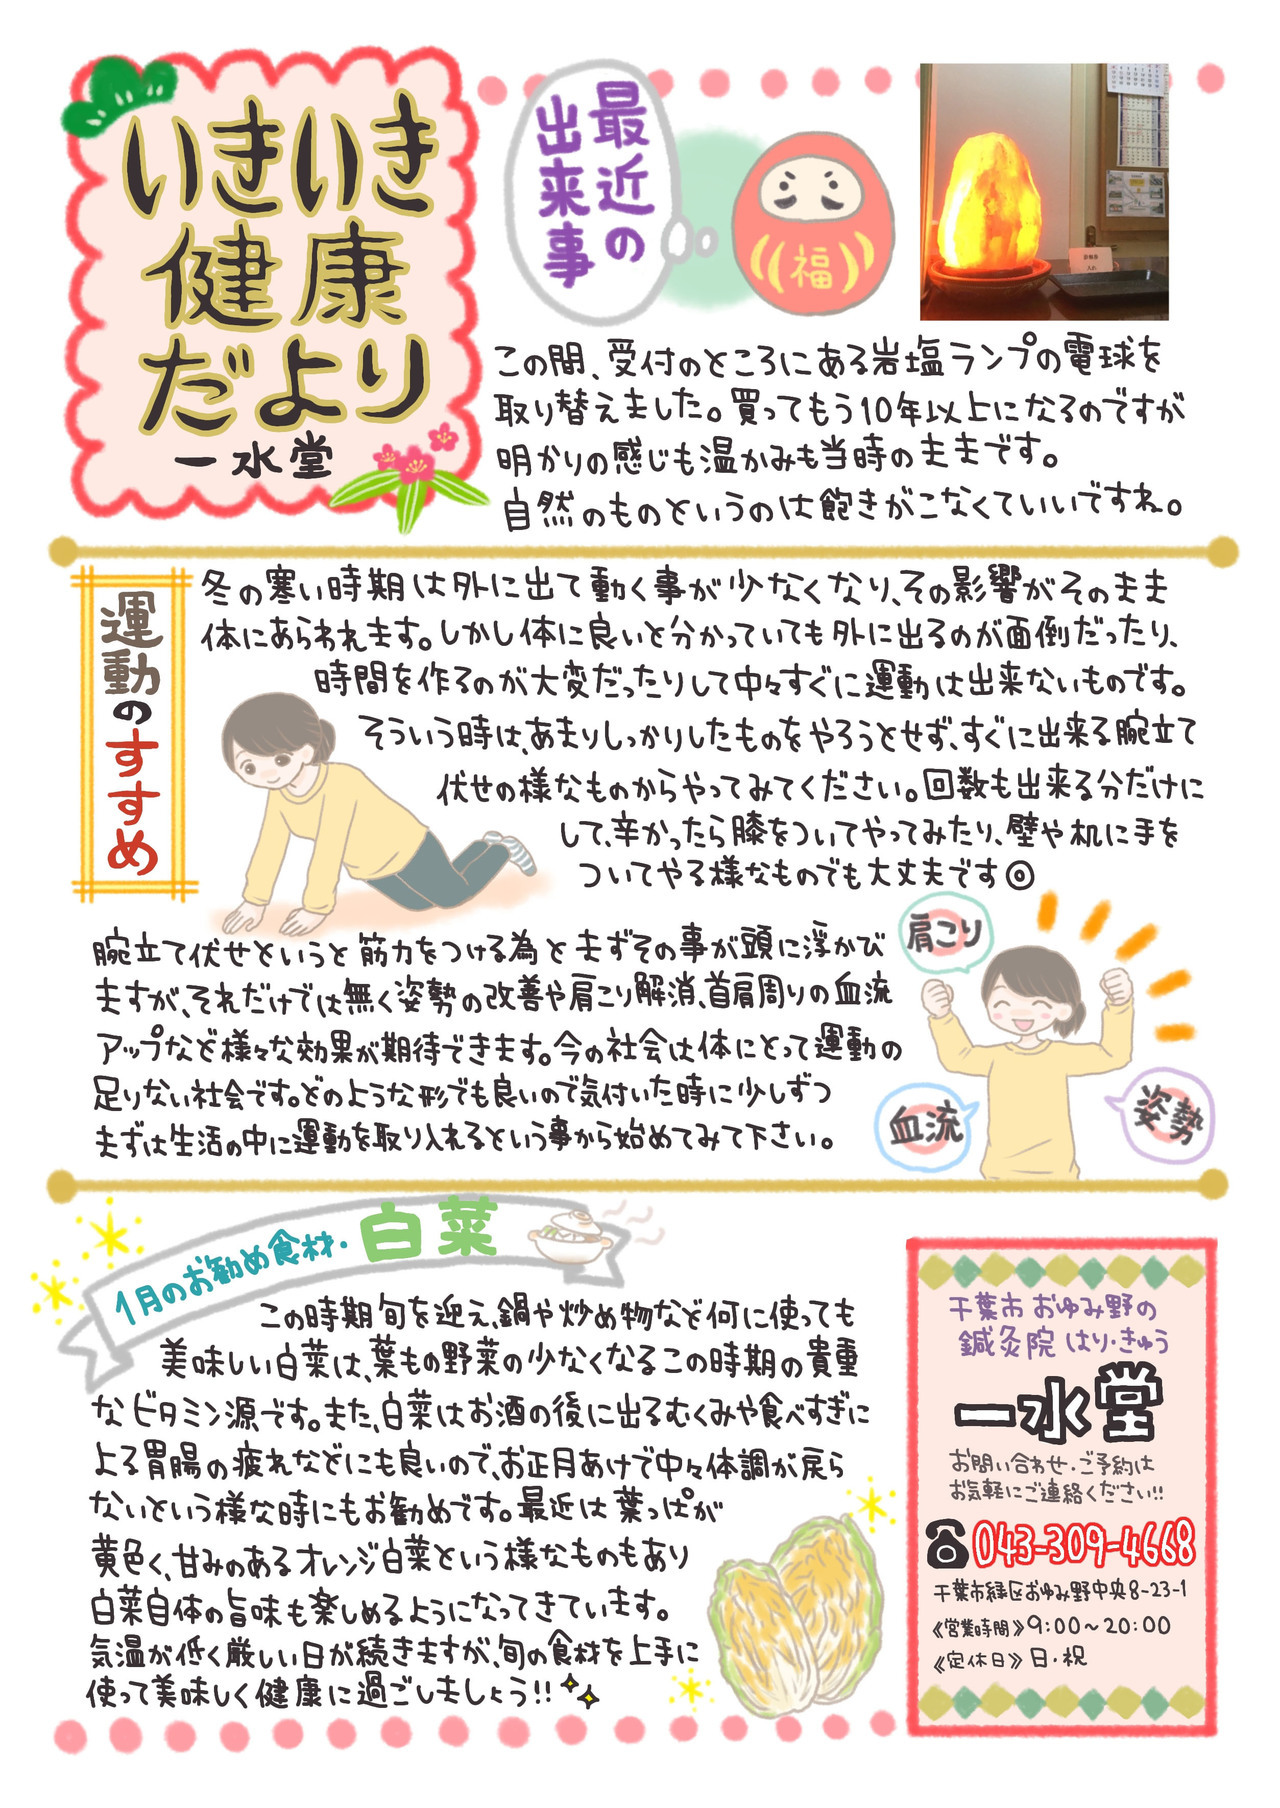 いきいき
健康
だより
一水堂
最近の
出来事
福
この間、受付のところにある岩塩ランプの電球を
取り替えました。買ってもう10年以上になるのですが
明かりの感じも温かみも当時のままです。
自然のものというのは飽きがこなくていいですね。
運動のすすめ
冬の寒い時期は外に出て動く事が少なくなり、その影響がそのまま
体にあらわれます。しかし体に良いと分かっていても外に出るのが面倒だったり、
時間を作るのが大変だったりして中々すぐに運動は出来ないものです。
そういう時は、あまりしっかりしたものをやろうとせず、すぐに出来る腕立て
伏せの様なものからやってみてください。回数も出来る分だけに
して、辛かったら膝をついてやってみたり、壁や机に手を
ついてやる様なものでも大丈夫です◎
腕立て伏せというと筋力をつける為とまずその事が頭に浮かび
ますが、それだけでは無く姿勢の改善や肩こり解消、首肩周りの血流
アップなど様々な効果が期待できます。今の社会は体にとって運動の
足りない社会です。どのような形でも良いので気付いた時に少しずつ
まずは生活の中に運動を取り入れるという事から始めてみて下さい。
肩こり
血流
姿勢
1月のお勧め食材・白菜
この時期旬を迎え、鍋や炒め物など何に使っても
美味しい白菜は、葉もの野菜の少なくなるこの時期の貴重
なビタミン源です。また、白菜はお酒の後に出るむくみや食べすぎに
よる胃腸の疲れなどにも良いので、お正月あけで中々体調が戻ら
ないという様な時にもお勧めです。最近は葉っぱが
黄色く、甘みのあるオレンジ白菜という様なものもあり
白菜自体の旨味も楽しめるようになってきています。
気温が低く厳しい日が続きますが、旬の食材を上手に
使って美味しく健康に過ごしましょう!!
千葉市おゆみ野の
鍼灸院 はり・きゅう
一水堂
お問い合わせ・ご予約は
お気軽にご連絡ください!!
☎043-309-4668
千葉市緑区おゆみ野中央8-23-1
《営業時間》9:00~20:00
《定休日》日・祝